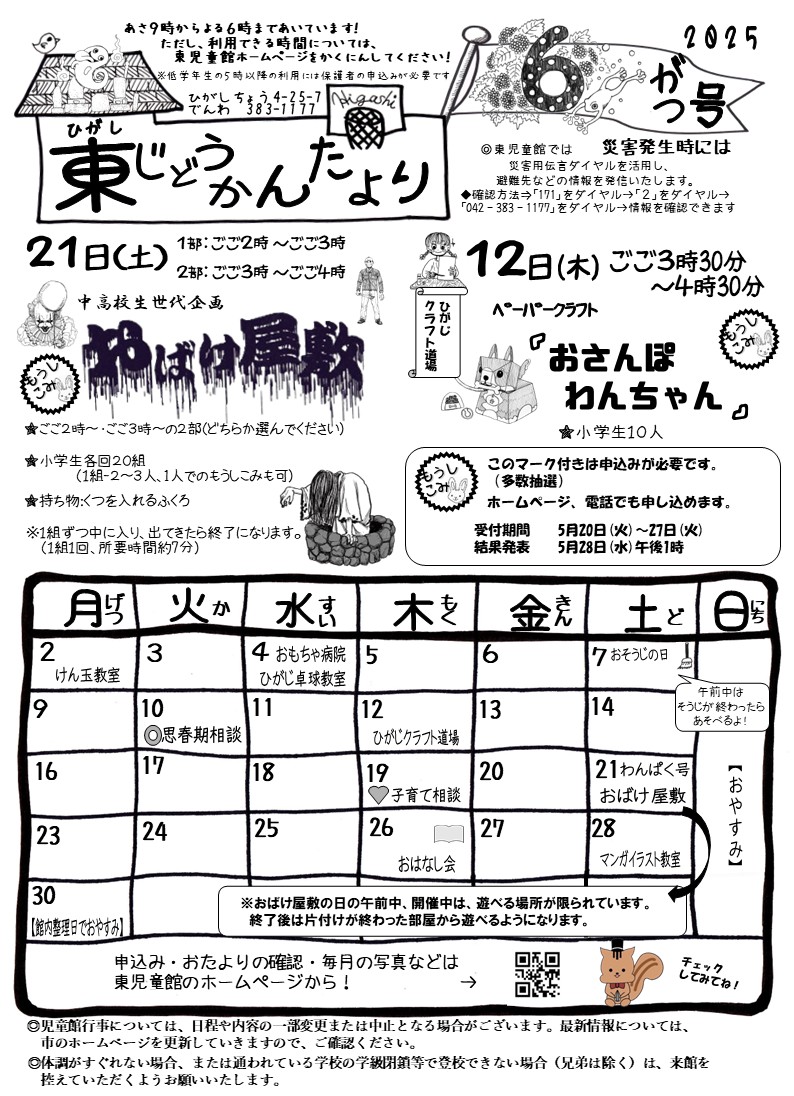 あさ9時からよる6時まであいています!
ただし、利用できる時間については、
東児童館ホームページをかくにんしてください!
※低学年生の5時以降の利用には保護者の申込みが必要です
ひがしちょう4-25-7
でんわ 383-1177
Higashi
ひがし
東じどうかんたより
2025
6がつ号
◎東児童館では 災害発生時には
災害用伝言ダイヤルを活用し、
避難先などの情報を発信いたします。
◆確認方法⇒「171」をダイヤル→「2」をダイヤル→
「042-383-1177」をダイヤル→情報を確認できます
21日(土) 1部:ごご2時~ごご3時
2部:ごご3時~ごご4時
中高校生世代企画
おばけ屋敷
もうしこみ
★ごご2時~・ごご3時~の2部(どちらか選んでください)
★小学生各回20組
(1組-2~3人、1人でのもうしこみも可)
★持ち物:くつを入れるふくろ
※1組ずつ中に入り、出てきたら終了になります。
(1組1回、所要時間約7分)
12日(木) ごご3時30分
~4時30分
ひがじ
クラフト道場
ペーパークラフト
『おさんぽ
わんちゃん』
もうしこみ
☆小学生10人
もうしこみ
このマーク付きは申込みが必要です。
(多数抽選)
ホームページ、電話でも申し込めます。
受付期間 5月20日(火)~27日(火)
結果発表 5月28日(水)午後1時
月げつ 火か 水すい 木もく 金きん 土ど 日にち
2 けん玉教室
3
4 おもちゃ病院
ひがじ卓球教室
5
6
7 おそうじの日
午前中は
そうじが終わったら
あそべるよ!
9
10 ◎思春期相談
11
12 ひがじクラフト道場
13
14
【おやすみ】
16
17
18
19 子育て相談
20
21 わんぱく号
おばけ屋敷
23
24
25
26 おはなし会
27
28 マンガイラスト教室
30
【館内整理日でおやすみ】
※おばけ屋敷の日の午前中、開催中は、遊べる場所が限られています。
終了後は片付けが終わった部屋から遊べるようになります。
申込み・おたよりの確認・毎月の写真などは
東児童館のホームページから! →
チェック
してみてね!
◎児童館行事については、日程や内容の一部変更または中止となる場合がございます。最新情報については、
市のホームページを更新していきますので、ご確認ください。
◎体調がすぐれない場合、または通われている学校の学級閉鎖等で登校できない場合(兄弟は除く)は、来館を
控えていただくようお願いいたします。